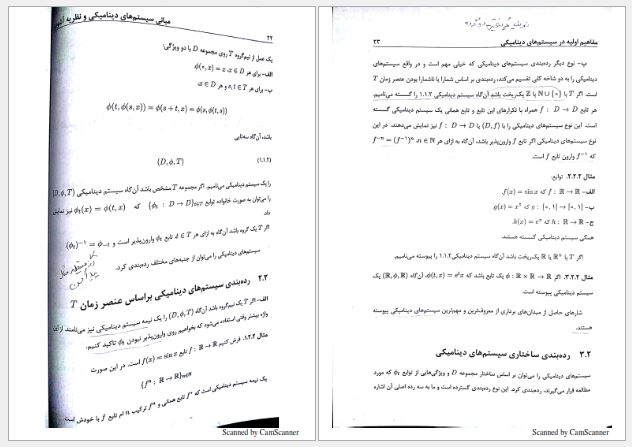 مبانی سیستم‌های دینامیکی و نظریه
۲۲
یک عمل از نیم‌گروه T روی مجموعه D با دو ویژگی:
الف- برای هر x ∈ D، ϕ(۰, x) = x
ب- برای هر s, t ∈ T و هر x ∈ D،
ϕ(t, ϕ(s, x)) = ϕ(s + t, x) = ϕ(s, ϕ(t, x))
باشد، آن‌گاه سه‌تایی
(D, ϕ, T) (۱.۱.۲)
را یک سیستم دینامیکی می‌نامیم. اگر مجموعه T مشخص باشد آن‌گاه سیستم دینامیکی (D, ϕ, T)
را می‌توان به صورت خانواده توابع {ϕt : D → D}t∈T که ϕt(x) = ϕ(t, x) نیز نمایش
داد.
اگر T یک گروه باشد آن‌گاه به ازای هر t ∈ T، تابع ϕt وارون‌پذیر است و (ϕt)⁻¹ = ϕ−t
سیستم‌های دینامیکی را می‌توان از جنبه‌های مختلف رده‌بندی کرد.
۲.۲ رده‌بندی سیستم‌های دینامیکی براساس عنصر زمان T
الف- اگر T یک نیم‌گروه باشد آن‌گاه (D, ϕ, T) را یک نیمه سیستم دینامیکی نیز می‌نامند. از این
واژه بیشتر وقتی استفاده می‌شود که بخواهیم روی وارون‌پذیر نبودن ϕt تاکید کنیم.
مثال ۱.۲.۲. فرض کنیم f : ℝ → ℝ تابع f(x) = sin x است. در این صورت
{fⁿ : ℝ → ℝ}n∈W
یک نیمه سیستم دینامیکی است که f⁰ تابع همانی و fⁿ ترکیب n ام تابع f با خودش است.
Scanned by CamScanner
مفاهیم اولیه در سیستم‌های دینامیکی
۲۳
ب- نوع دیگر رده‌بندی سیستم‌های دینامیکی که خیلی مهم است و در واقع سیستم‌های
دینامیکی را به دو شاخه کلی تقسیم می‌کند، رده‌بندی بر اساس شمارا یا ناشمارا بودن عنصر زمان T
است. اگر T با ℕ ∪ {۰} یا ℤ یک‌ریخت باشد آن‌گاه سیستم دینامیکی ۱.۱.۲ را گسسته می‌نامیم.
هر تابع f : D → D همراه با تکرارهای این تابع و تابع همانی یک سیستم دینامیکی گسسته
است. این نوع سیستم‌های دینامیکی را با (D, f) یا f : D → D نیز نمایش می‌دهند. در این
نوع سیستم‌های دینامیکی اگر تابع f وارون‌پذیر باشد، آن‌گاه به ازای هر n ∈ ℕ، f⁻ⁿ = (f⁻¹)ⁿ
که f⁻¹ وارون تابع f است.
مثال ۲.۲.۲. توابع:
الف- f : ℝ → ℝ که f(x) = sin x.
ب- g : [۰, ۱] → [۰, ۱] که g(x) = x²
ج- h : ℝ → ℝ که h(x) = eˣ.
همگی سیستم دینامیکی گسسته هستند.
اگر T با ℝ⁺ یا ℝ یک‌ریخت باشد آن‌گاه سیستم دینامیکی ۱.۱.۲ را پیوسته می‌نامیم.
مثال ۳.۲.۲. اگر ϕ : ℝ × ℝ → ℝ یک تابع باشد که ϕ(t, x) = eᵗx، آن‌گاه (ℝ, ϕ, ℝ) یک
سیستم دینامیکی پیوسته است.
شارهای حاصل از میدان‌های برداری از معروف‌ترین و مهم‌ترین سیستم‌های دینامیکی پیوسته
هستند.
۳.۲ رده‌بندی ساختاری سیستم‌های دینامیکی
سیستم‌های دینامیکی را می‌توان بر اساس ساختار مجموعه D و ویژگی‌هایی از توابع ϕt که مورد
مطالعه قرار می‌گیرند، رده‌بندی کرد. این نوع رده‌بندی گسترده است و ما به سه رده اصلی آن اشاره
Scanned by CamScanner